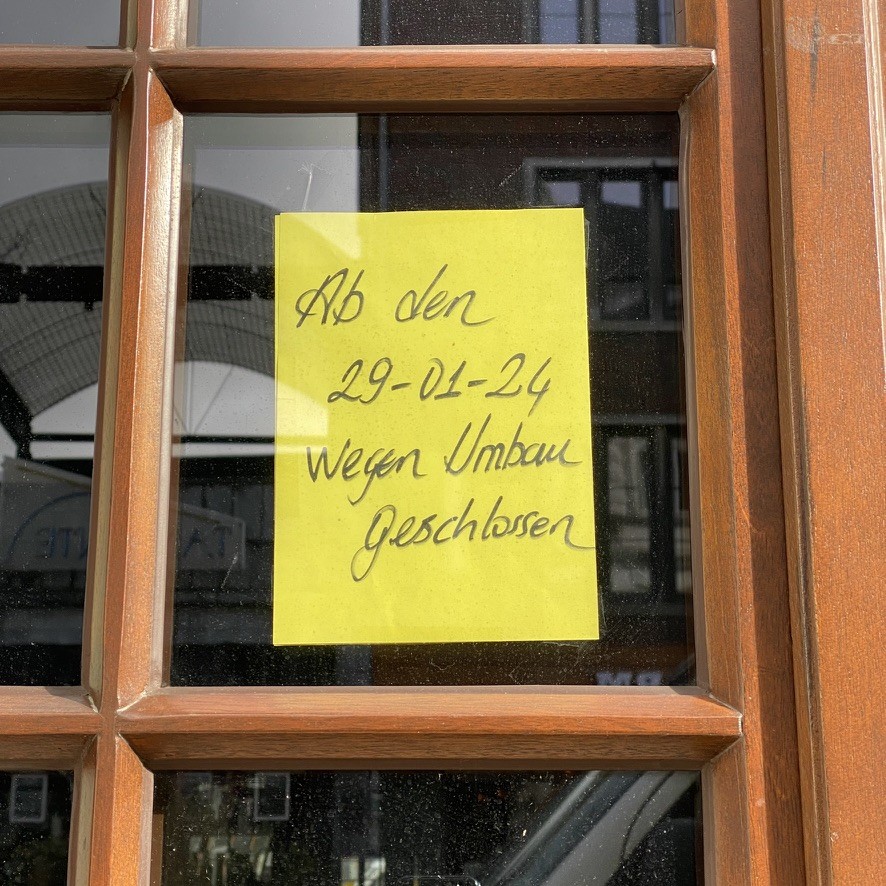 Ab den
29-01-24
Wegen Umbau
Geschlossen